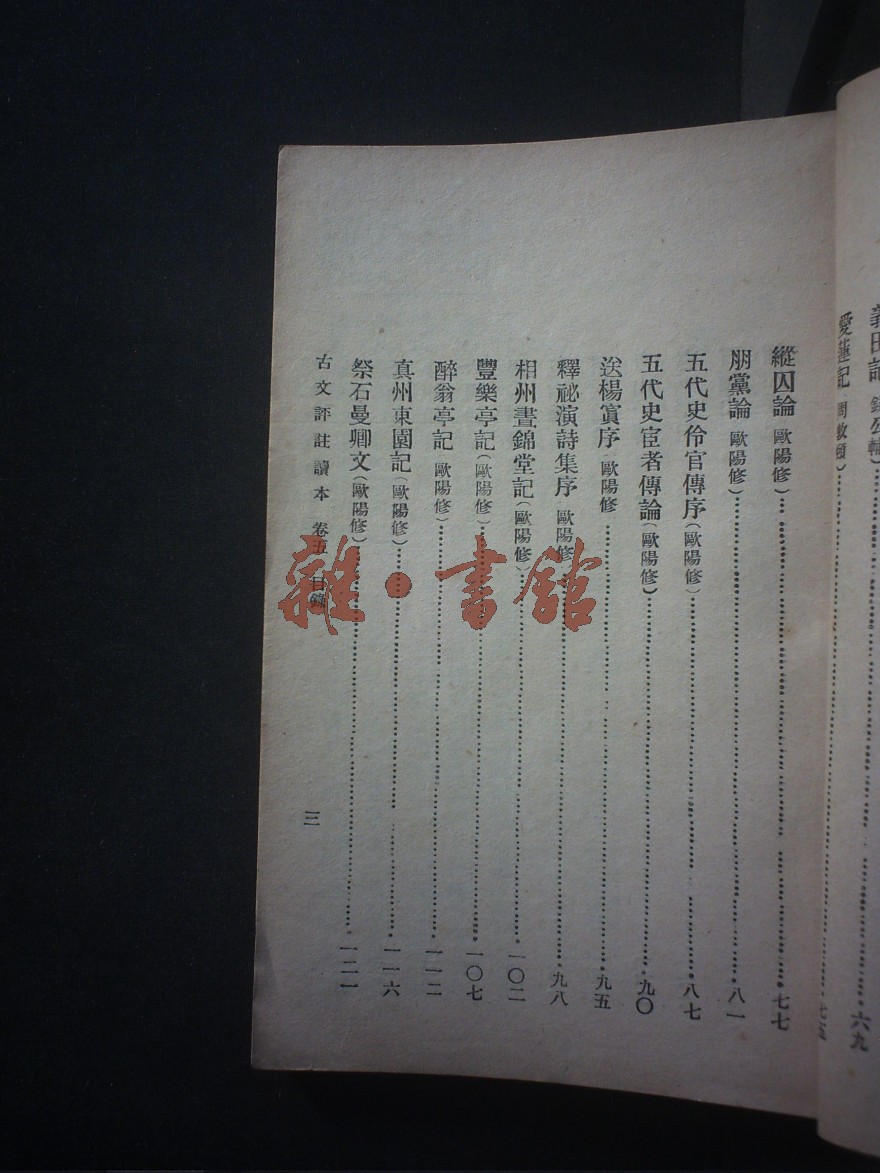 義田記(錢公輔)……六九
愛蓮記(周敦頤)……七五
縱囚論(歐陽修)……七七
朋黨論(歐陽修)……八一
五代史伶官傳序(歐陽修)……八七
五代史宦者傳論(歐陽修)……九〇
送楊寘序(歐陽修)……九五
釋祕演詩集序(歐陽修)……九八
相州晝錦堂記(歐陽修)……一〇二
豐樂亭記(歐陽修)……一〇七
醉翁亭記(歐陽修)……一一二
真州東園記(歐陽修)……一一六
祭石曼卿文(歐陽修)……一二一
古文評註讀本 卷五 目錄 三
雜·書館